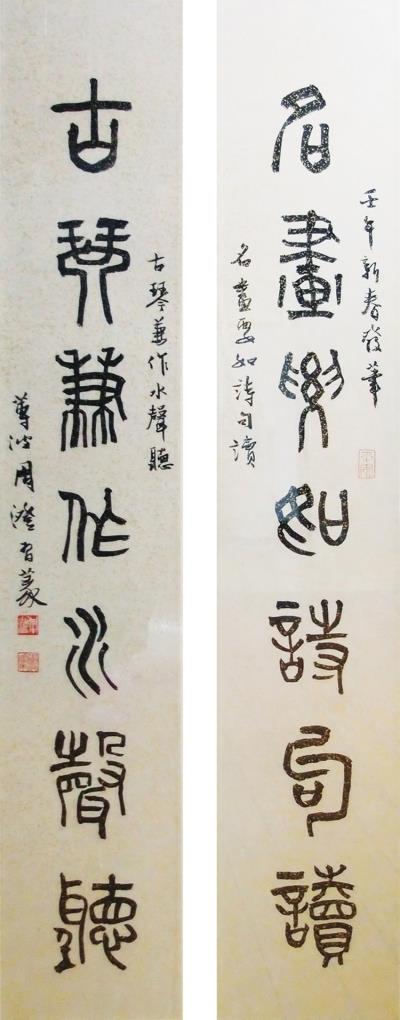 壬午新春發筆
名畫要如詩句讀
名畫要如詩句讀
古琴兼作水聲聽
古琴兼作水聲聽
蓴波周澄習篆